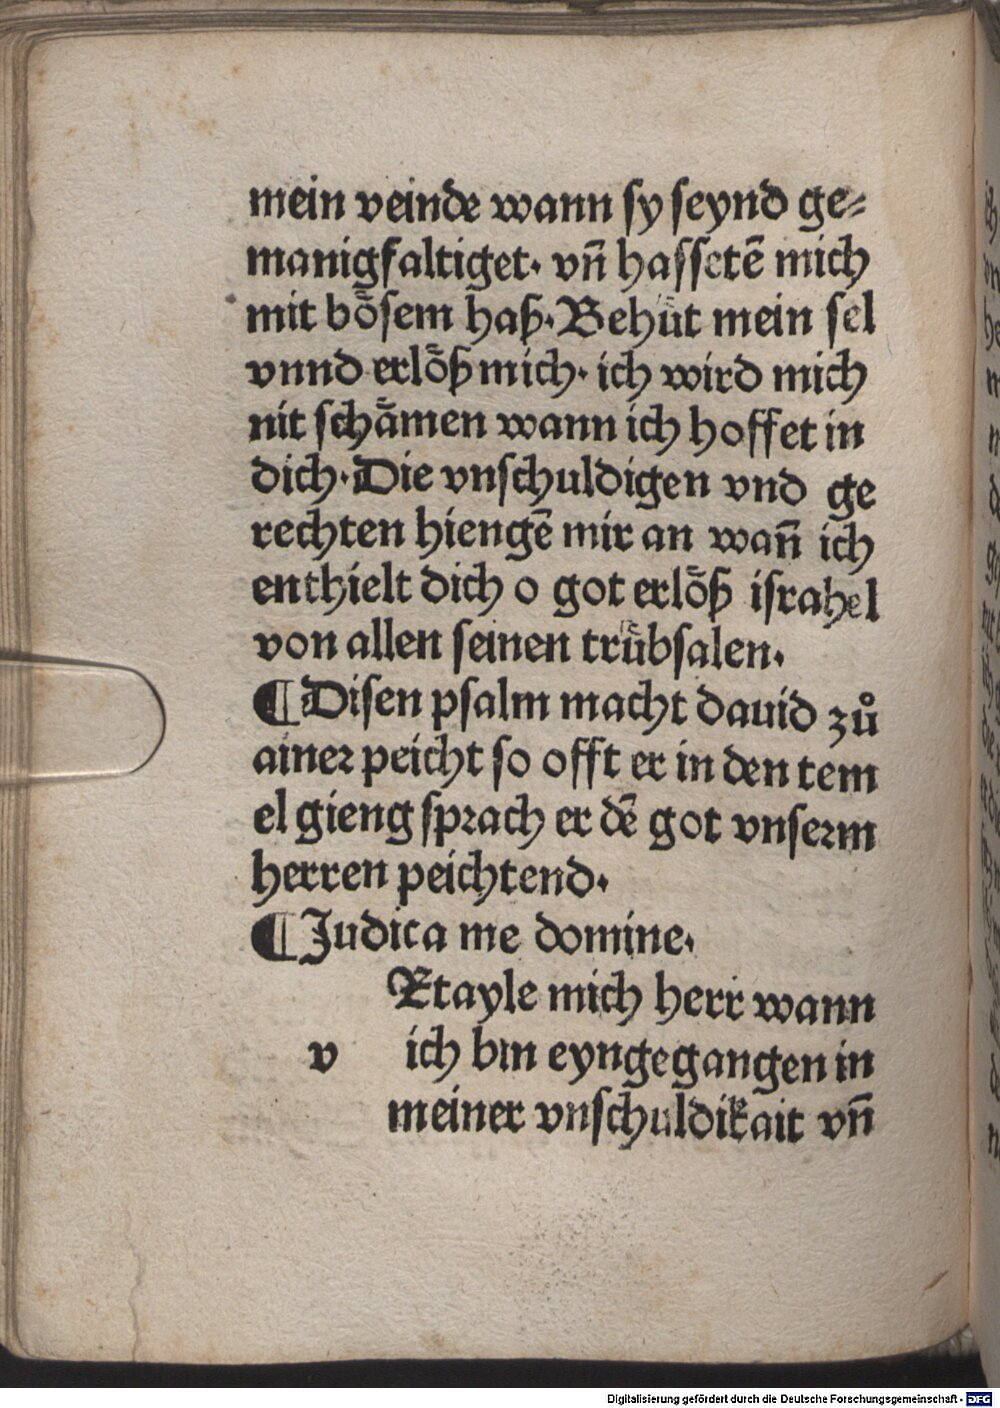 mein veinde wann sy seynd ge⸗
manigfaltiget· vn̄ hassetē mich
mit boͤsem haß·Behuͤt mein sel
vnnd erloͤß mich· ich wird mich
nit schaͤmen wann ich hoffet in
dich·Die vnschuldigen vnd ge
rechten hiengē mir an wan̄ ich
enthielt dich o got erloͤß israhel
von allen seinen truͤbsalen.
¶Disen psalm macht dauid zů
ainer peicht so offt er in den tem
el gieng sprach er dē got vnserm
herren peichtend.
¶Judica me domine.
Etayle mich herr wann
v ich bin eyngegangen in
meiner vnschuldikait vn̄
Digitalisierung gefördert durch die Deutsche Forschungsgemeinschaft - DFG